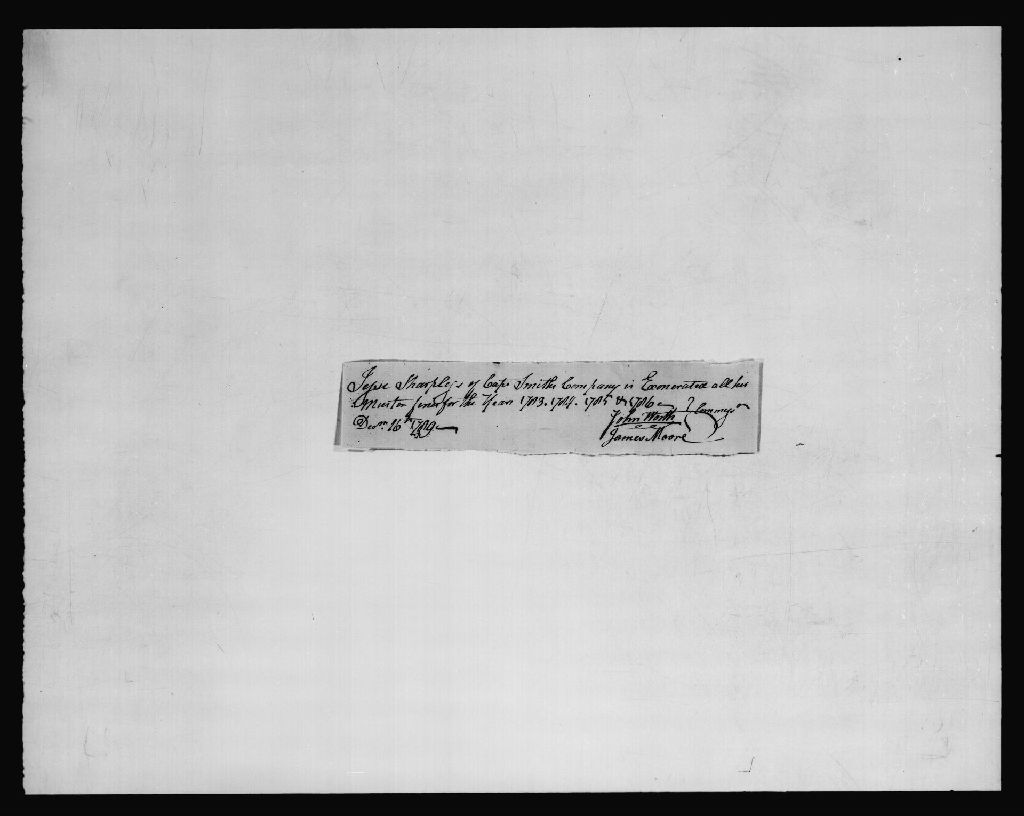 Jesse Sharpless of Capt Smiths Company is Exonerated all his
Muster fines for the Years 1783. 1784. 1785 & 1786
John Worth } Commrs
Decm 16th 1789
James Moore